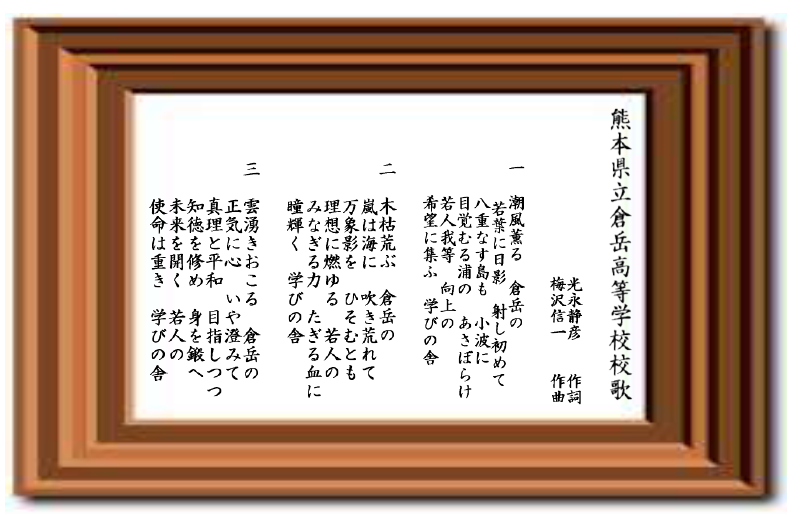 熊本県立倉岳高等学校校歌
光永静彦 作詞
梅沢信一 作曲
一 潮風薫る 倉岳の
若葉に日影 射し初めて
八重なす島も 小波に
目覚むる浦の あさぼらけ
若人我等 向上の
希望に集ふ 学びの舎
二 木枯荒ぶ 倉岳の
嵐は海に 吹き荒れて
万象影を ひそむとも
理想に燃ゆる 若人の
みなぎる力 たぎる血に
瞳輝く 学びの舎
三 雲湧きおこる 倉岳の
正気に心 いや澄みて
真理と平和 目指しつつ
知徳を修め 身を鍛へ
未来を開く 若人の
使命は重き 学びの舎